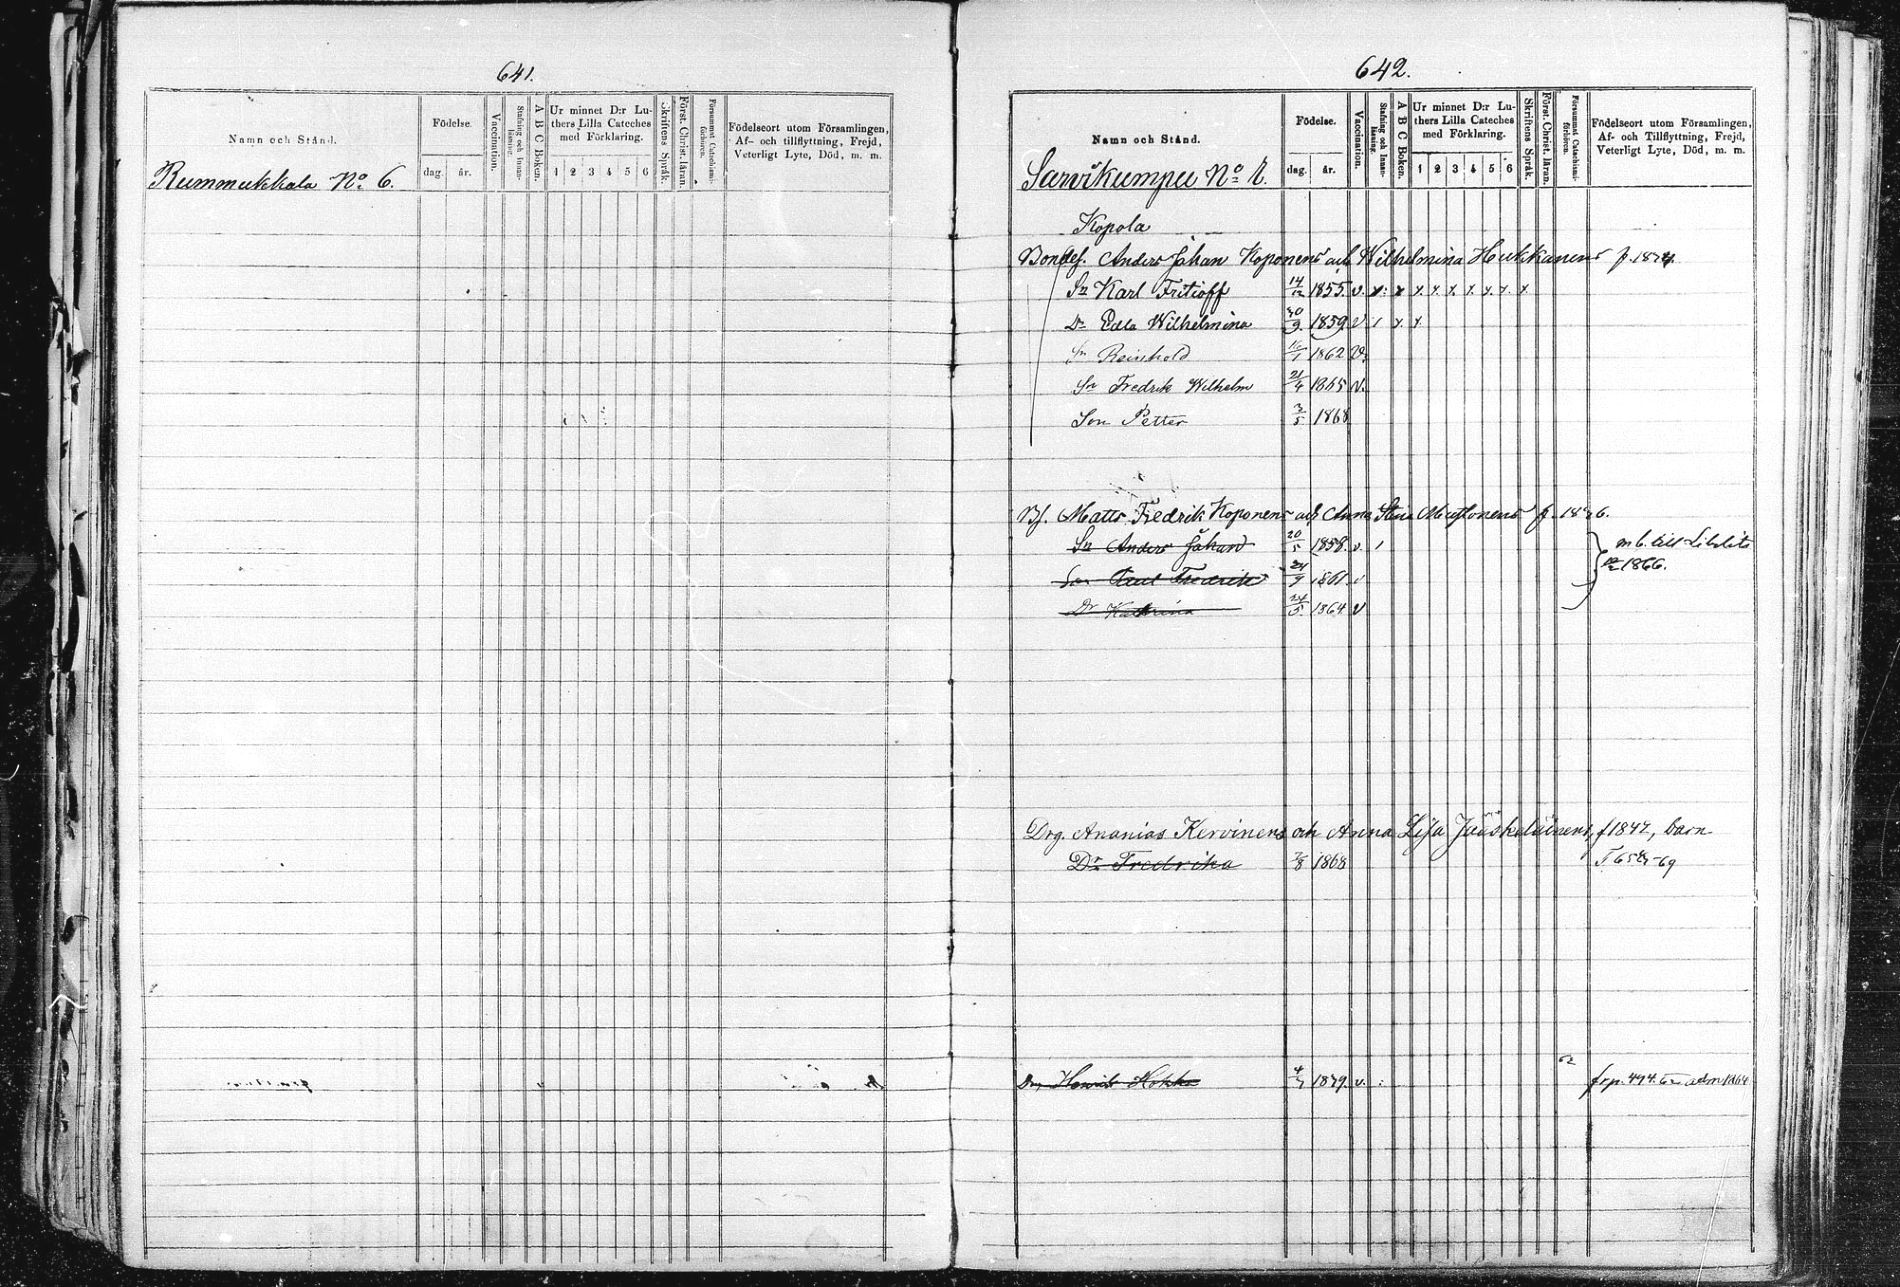 641.
Namn och Stånd.
Födelse.
dag. år.
Vaccination.
Stafning och Innanläsning.
A B C Boken.
Ur minnet D:r Luthers Lilla Cateches med Förklaring.
1 2 3 4 5 6
Skriftens Språk.
Först. Christ. läran.
Försummat Catechismiförhören.
Födelseort utom Församlingen,
Af- och tillflyttning, Frejd,
Veterligt Lyte, Död, m. m.
Rummukkala No 6.
642.
Namn och Stånd.
Födelse.
dag. år.
Vaccination.
Stafning och Innanläsning.
A B C Boken.
Ur minnet D:r Luthers Lilla Cateches med Förklaring.
1 2 3 4 5 6
Skriftens Språk.
Först. Christ. läran.
Försummat Catechismiförhören.
Födelseort utom Församlingen,
Af- och Tillflyttning, Frejd,
Veterligt Lyte, Död, m. m.
Sarvikumpu No
Kopola
Bondes. Anders Johan Koponens och Wilhelmina Hukkanens f.
Sn Karl Fritioff 14/12 1855. v. x x x x x x x x x
Dr Edla Wilhelmina 30/9 1859 v / x x
Sn Reinhold 16/1 1862 v.
Sn Fredrik Wilhelm 21/4 1865 v.
Son Petter 3/5 1868
Bf. Matts Fredrik Koponens och Anna Stina Mustonens f.
Sn Anders Johan 20/5 1858. v. / m b. till Libelits
Son Paul Fredrik 24/9 1861. v 1866.
Dr Katrina 24/5 1864 v
Drg. Ananias Kervinens och Anna Lisa Jääskeläinens, f 1842, barn
Dr Fredrika 7/8 1868
Drg Henrik Hokka 4/7 v. frp. 494. adm 1864